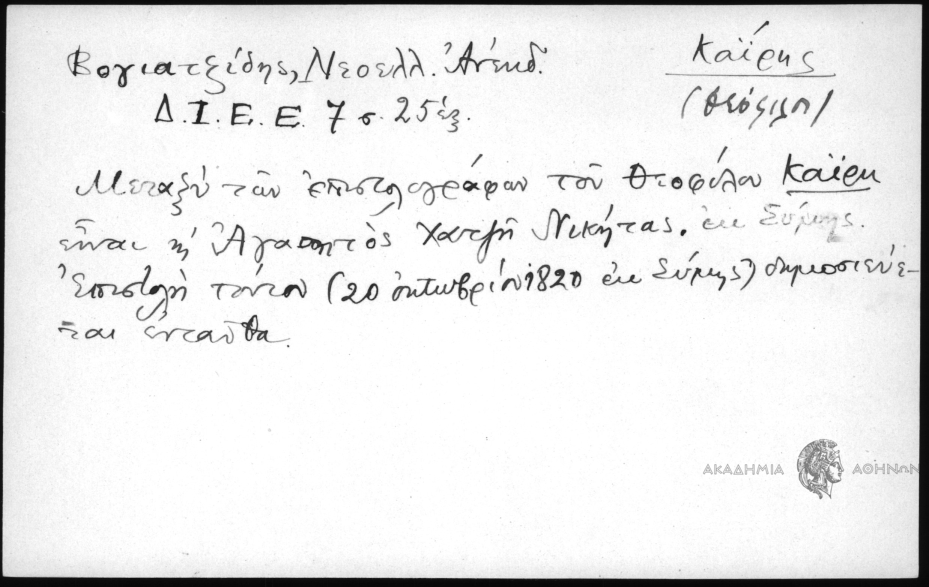 Βογιατζίδης, Νεοελλ. Ἀνέκδ.
Καΐρης
Δ.Ι.Ε.Ε. 7 σ. 25 ἑξ.
(Θεόφιλος)
Μεταξὺ τῶν ἐπιστολογράφων τοῦ Θεοφίλου Καΐρη
εἶναι κ' ἡ Ἀγαπητὸς Χατζῆ Νικήτας. ἐκ Σύμης.
Ἐπιστολὴ τούτου (20 ὀκτωβρίου 1820 ἐκ Σύμης) δημοσιεύε-
ται ἐνταῦθα.
ΑΚΑΔΗΜΙΑ ΑΘΗΝΩΝ